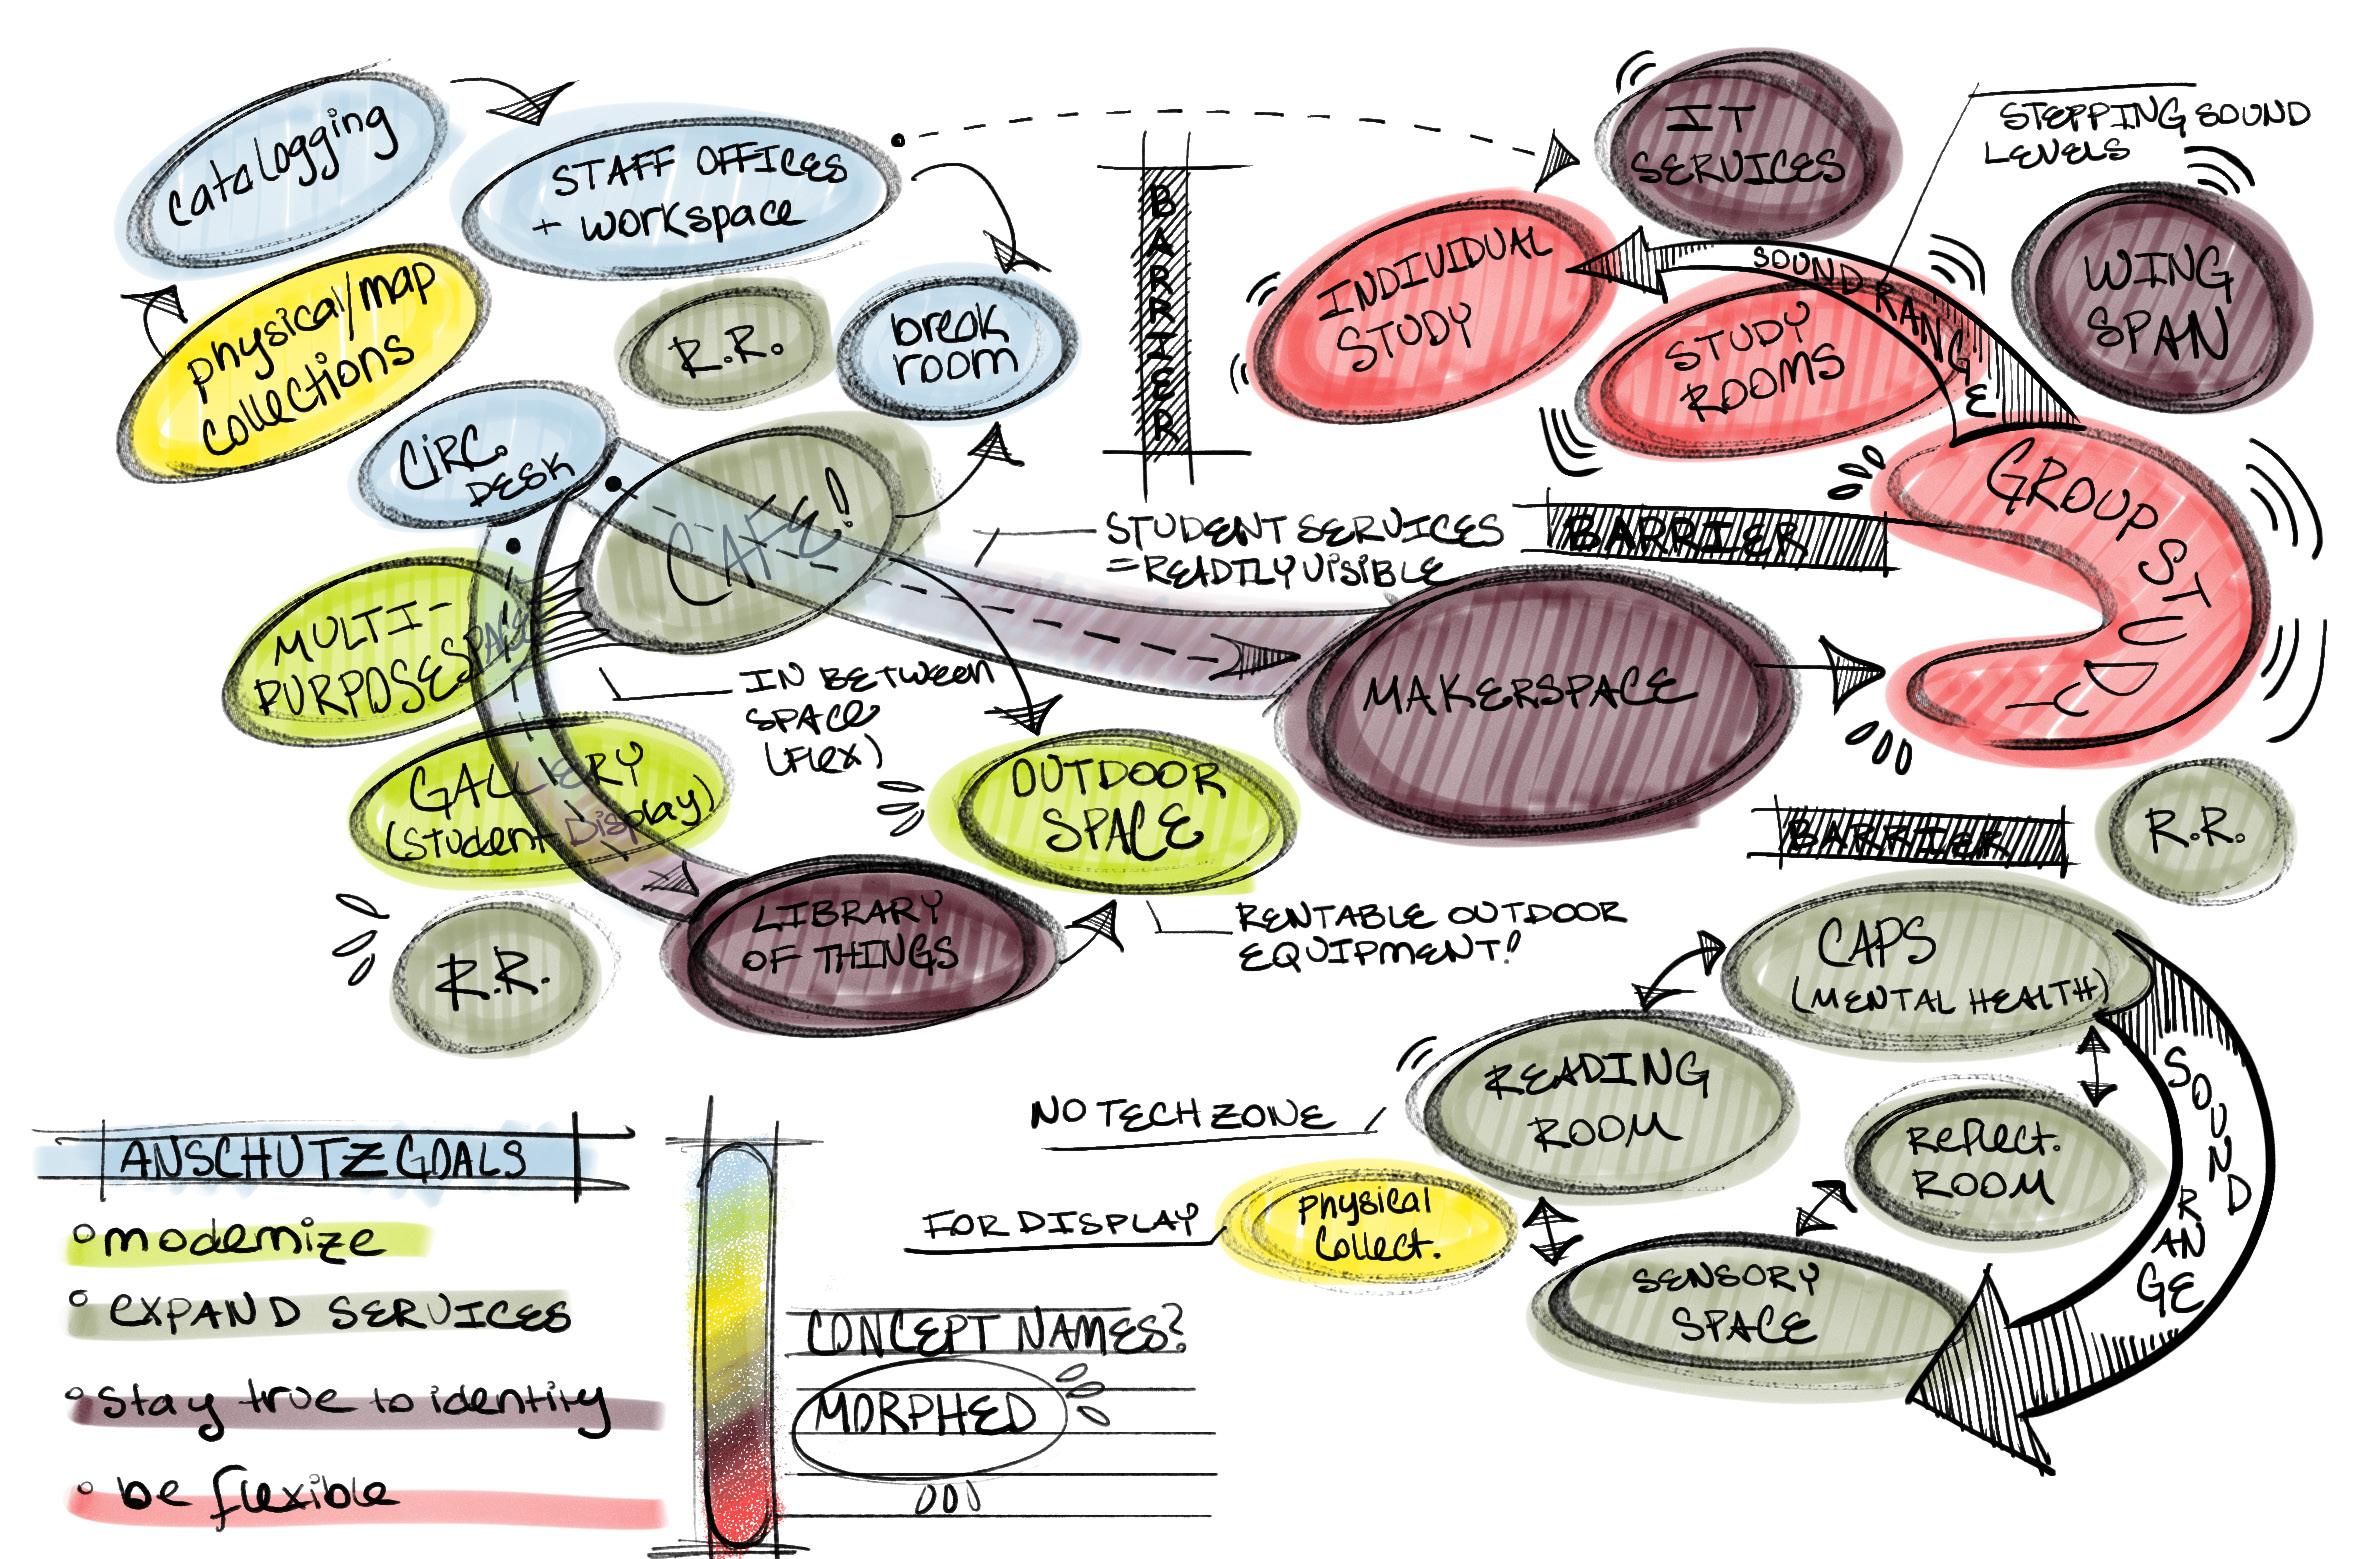 Catalogging
STAFF OFFICES
+ workspace
IT
SERVICES
STEPPING SOUND
LEVELS
physical/map
collections
R.R.
break
room
BARRIER
INDIVIDUAL
STUDY
SOUND RANGE
STUDY
ROOMS
WING
SPAN
CIRC.
DESK
CAFE!
STUDENT SERVICES
= READILY VISIBLE
BARRIER
GROUP STUDY
MULTI-
PURPOSE SPACE
IN BETWEEN
SPACE
(Flex)
MAKERSPACE
GALLERY
(Student Display)
OUTDOOR
SPACE
BARRIER
R.R.
LIBRARY
OF THINGS
RENTABLE OUTDOOR
EQUIPMENT!
R.R.
CAPS
(MENTAL HEALTH)
READING
ROOM
SOUND
RANGE
NO TECH ZONE
Reflect.
ROOM
FOR DISPLAY
Physical
Collect.
SENSORY
SPACE
ANSCHUTZ GOALS
modernize
EXPAND SERVICES
stay true to identity
be flexible
CONCEPT NAMES?
MORPHED